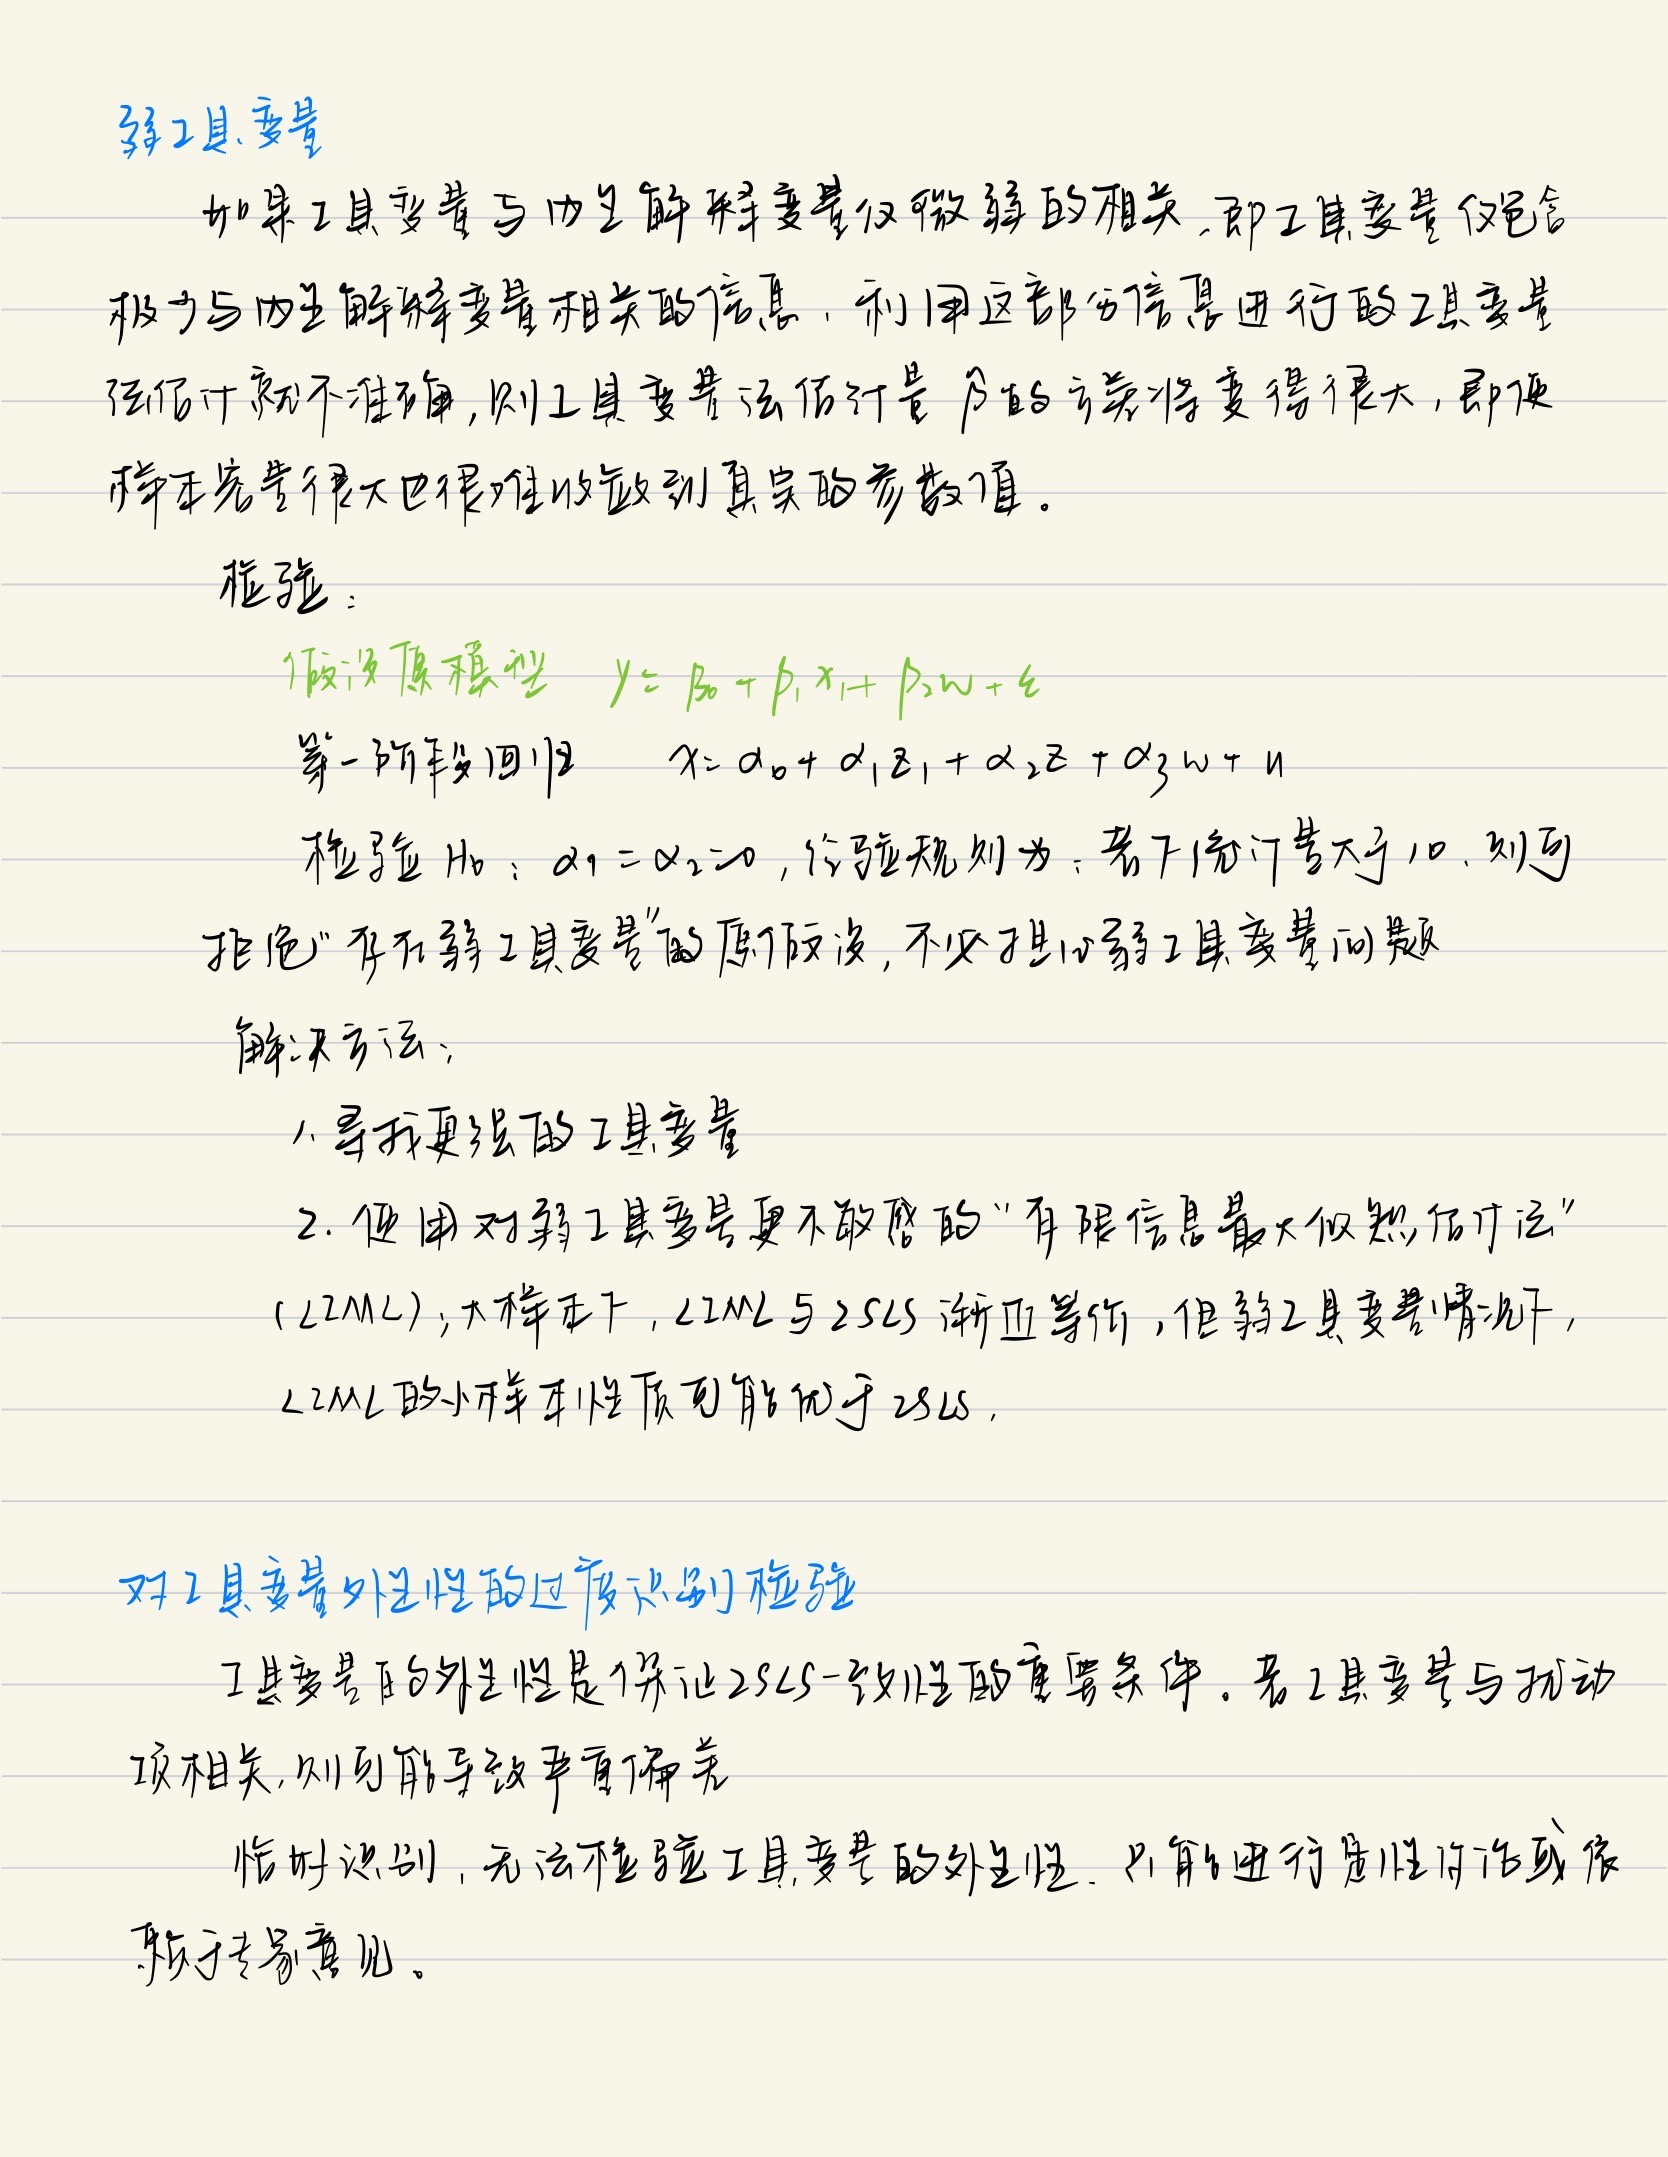 弱工具变量
如果工具变量与内生解释变量仅微弱的相关，即工具变量仅包含
极少与内生解释变量相关的信息，利用这部分信息进行的工具变量
法估计就不准确，则工具变量法估计量β的方差将变得很大，即便
样本容量很大也很难收敛到真实的参数值。
检验：
假设原模型 y = β₀ + β₁x₁ + β₂w + ε
第一阶段回归 x = α₀ + α₁z₁ + α₂z + α₃w + u
检验 H₀：α₁ = α₂ = 0，经验规则为：若F统计量大于10，则可
拒绝“存在弱工具变量”的原假设，不必担心弱工具变量问题
解决方法：
1. 寻找更强的工具变量
2. 使用对弱工具变量更不敏感的“有限信息最大似然估计法”
(LIML)；大样本下，LIML与2SLS渐近等价，但弱工具变量情况下，
LIML的小样本性质可能优于2SLS.
对工具变量外生性的过度识别检验
工具变量的外生性是保证2SLS一致性的重要条件。若工具变量与扰动
项相关，则可能导致严重偏差
恰好识别，无法检验工具变量的外生性，只能进行定性讨论或依
赖于专家意见。